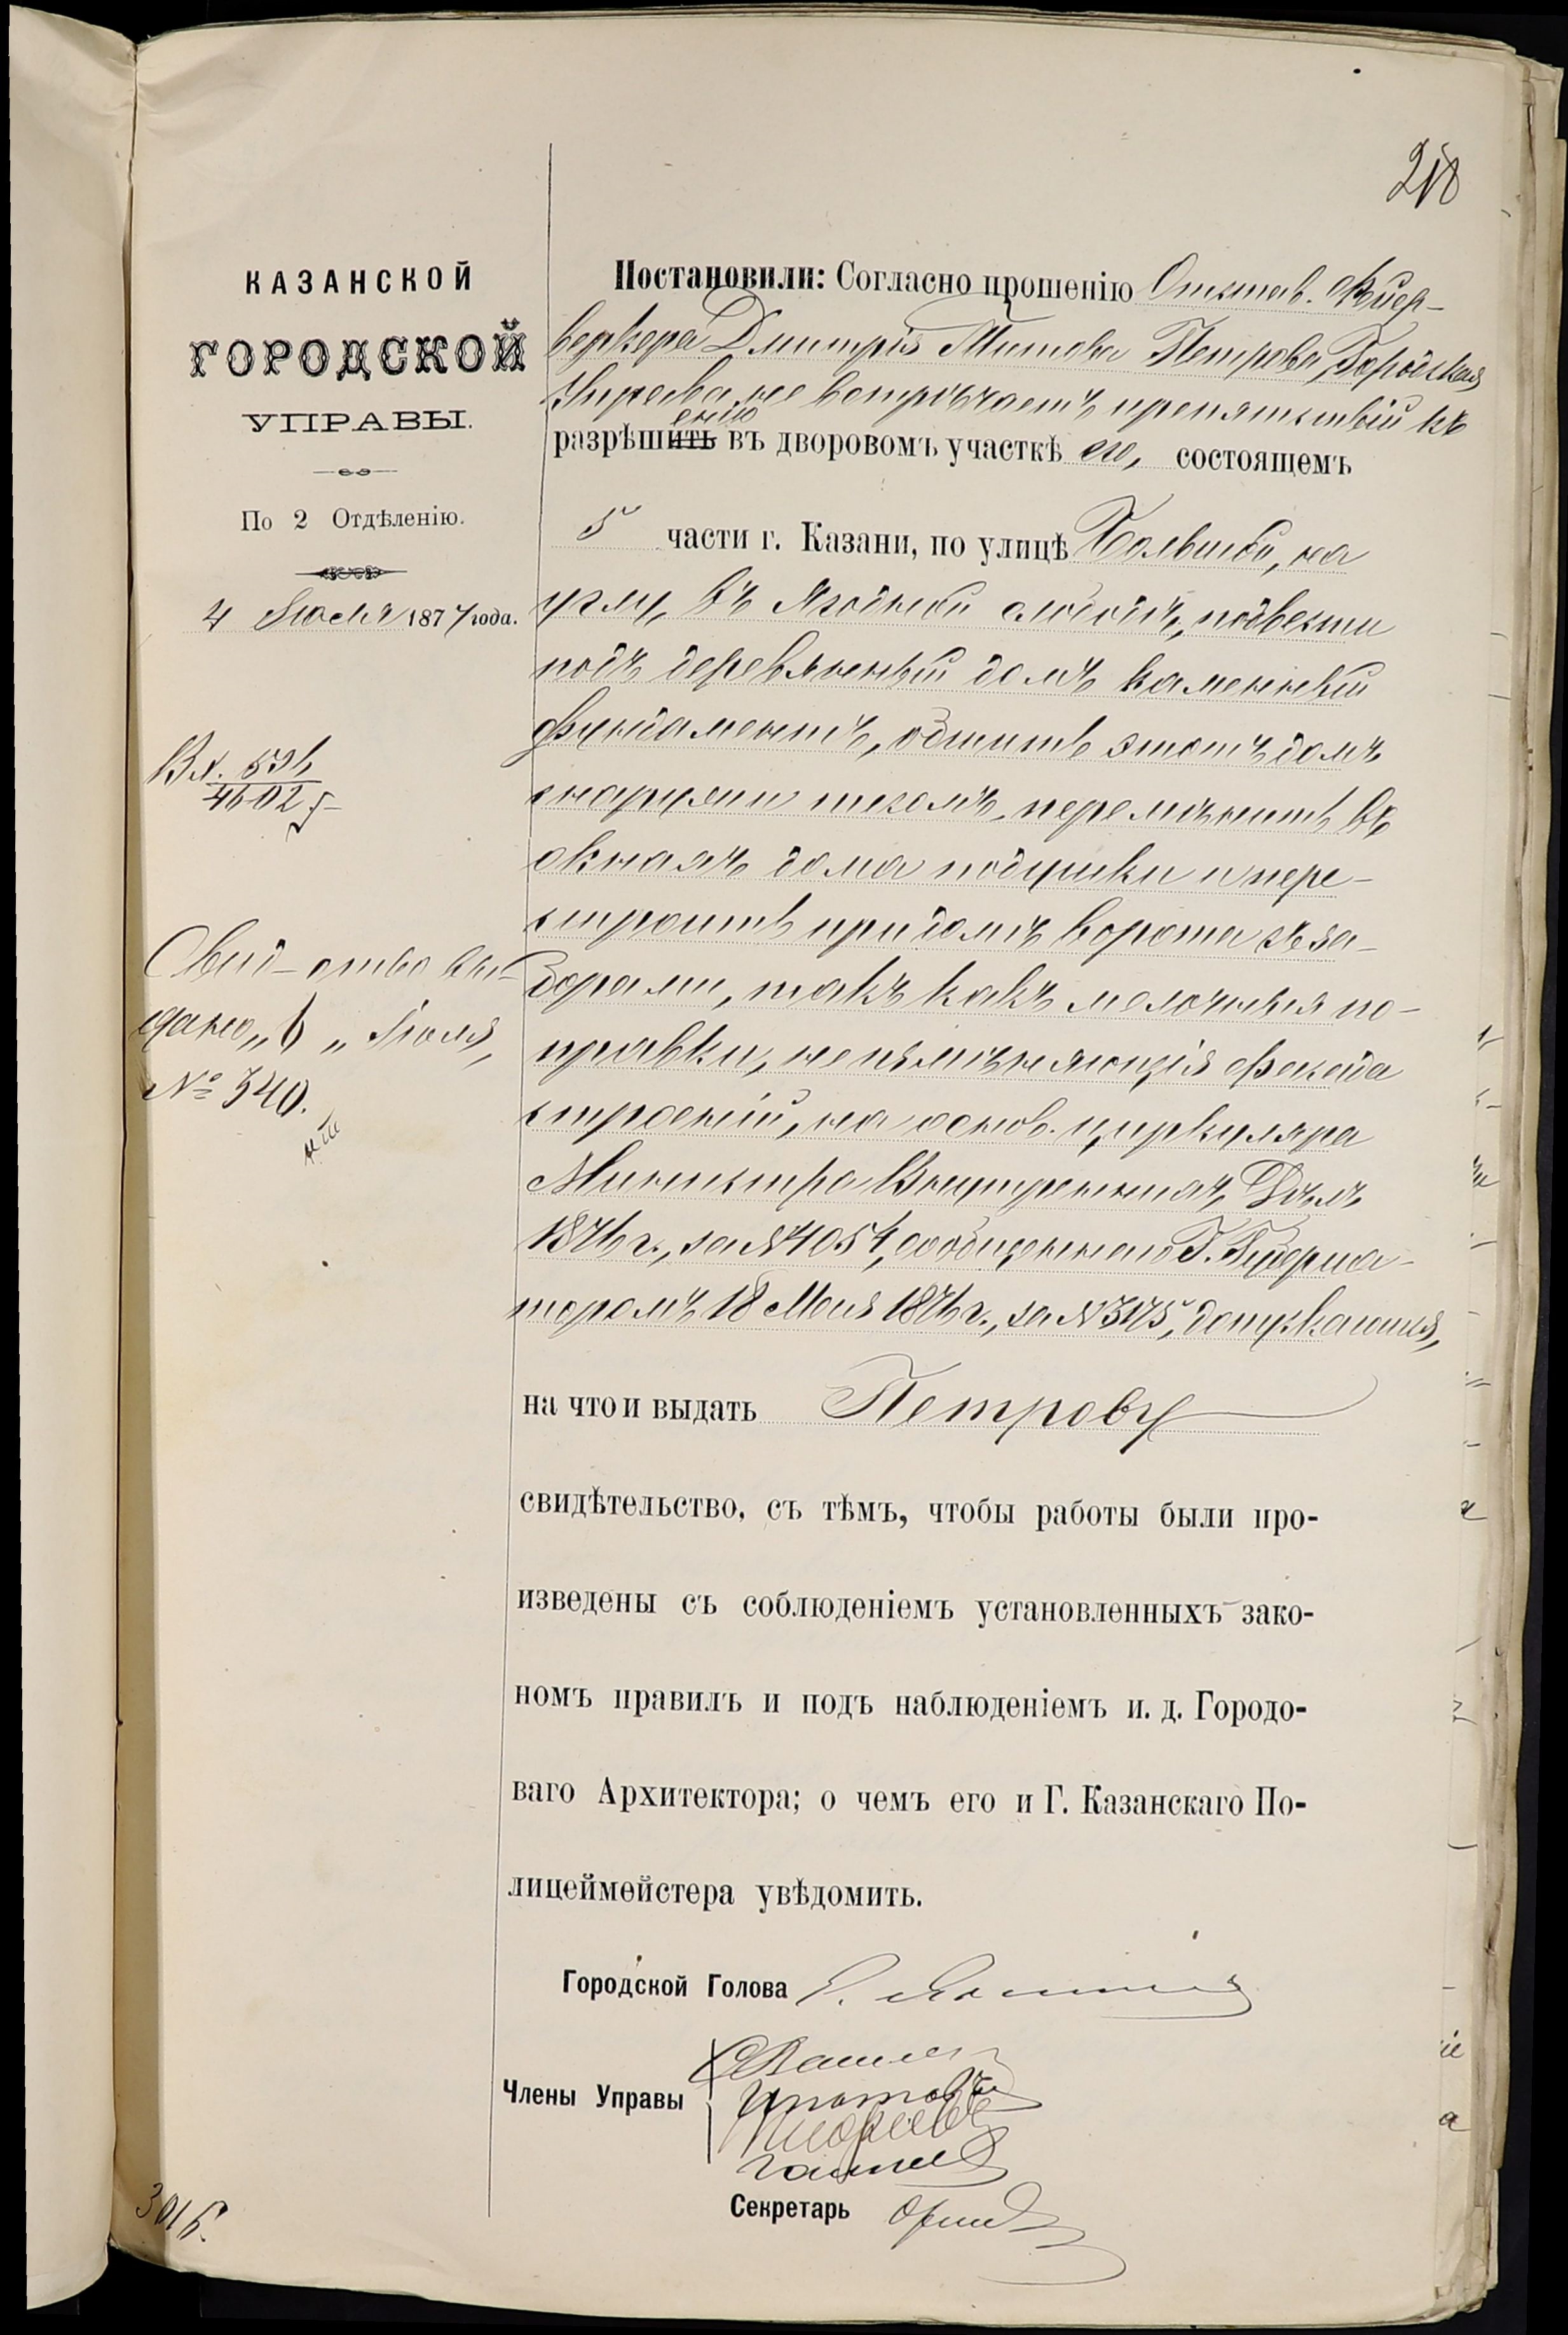 218
КАЗАНСКОЙ
ГОРОДСКОЙ
УПРАВЫ.
По 2 Отдѣленію.
4 Іюля 1877 года.
Вх. 596
4602
Свид-ство вы-
дано „6„ Іюля,
№ 340.
Постановили: Согласно прошенію Отстав. Фйер-
веркера Дмитрія Титова Петрова, Городская
Управа не встрѣчаетъ препятствій къ
разрѣшить енію въ дворовомъ участкѣ его, состоящемъ
5 части г. Казани, по улицѣ Большой, на
углу, въ Ягодной слободѣ, подвести
подъ деревянный домъ каменный
фундаментъ, обшить этотъ домъ
снаружи тесомъ, перемѣнить въ
окнахъ дома подушки и пере-
строить при домѣ ворота съ за-
борами, такъ какъ мелочныя по-
правки, не измѣняющія фасада
строеній, на основ. циркуляра
Министра Внутреннихъ Дѣлъ
1876 г., за № 4054, сообщеннаго Г. Губерна-
торомъ 18 Мая 1876 г., за № 3175, допускаются,
на что и выдать Петрову
свидѣтельство, съ тѣмъ, чтобы работы были про-
изведены съ соблюденіемъ установленныхъ зако-
номъ правилъ и подъ наблюденіемъ и. д. Городо-
ваго Архитектора; о чемъ его и Г. Казанскаго По-
лицеймейстера увѣдомить.
Городской Голова
Члены Управы
Секретарь
301 б.